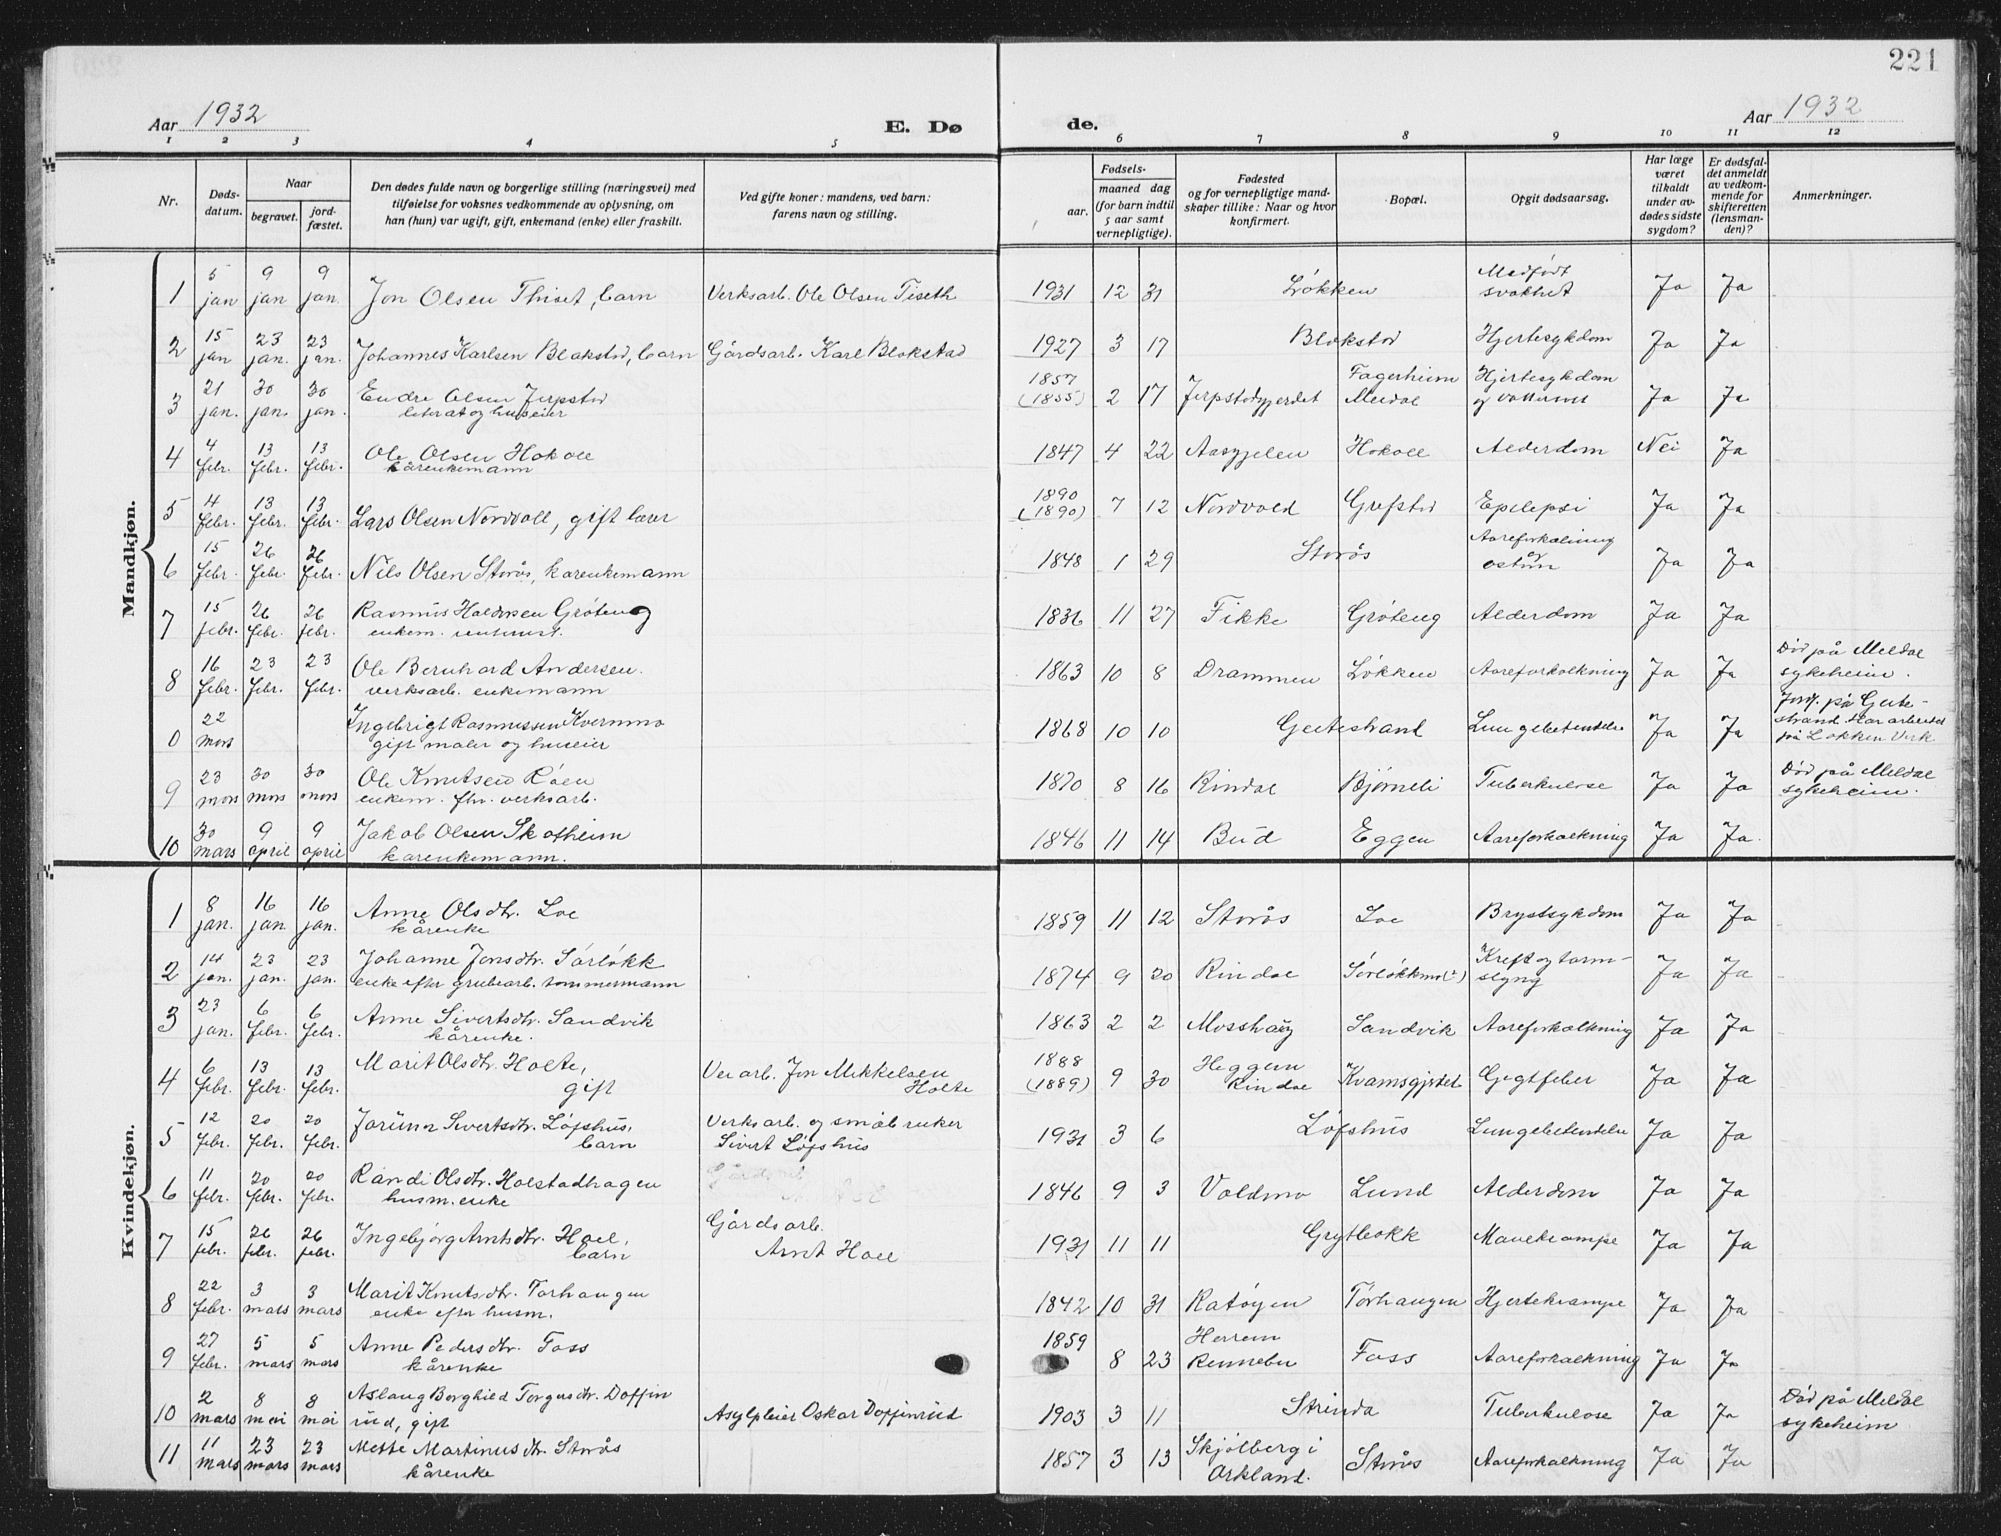 221
Aar 1932
E. Dø
de.
Aar 1932
1 2 3 4 5 6 7 8 9 10 11 12
Nr.
Døds-
datum.
Naar
begravet.
jord-
fæstet.
Den dødes fulde navn og borgerlige stilling (næringsvei) med
tilføielse for voksnes vedkommende av oplysning, om
han (hun) var ugift, gift, enkemand (enke) eller fraskilt.
Ved gifte koner: mandens, ved barn:
farens navn og stilling.
Fødsels-
aar.
maaned dag
(for barn indtil
5 aar samt
vernepligtige).
Fødested
og for vernepligtige mand-
skaper tillike: Naar og hvor
konfirmert.
Bopæl.
Opgit dødsaarsag.
Har læge
været
tilkaldt
under av-
dødes sidste
sygdom?
Er dødsfal-
det anmeldt
av vedkom-
mende for
skifteretten
(lensman-
den)?
Anmerkninger.
Mandkjøn.
5 9 9 Medfødt
1 jan jan jan. Jon Olsen Thiset, barn Verksarb. Ole Olsen Tiseth 1931 12 31 Løkken svakhet Ja Ja
15 23 23
2 jan jan. jan. Johannes Karlsen Blokstad, barn Gårdsarb. Karl Blokstad 1927 3 17 Blokstad Hjertesykdom Ja Ja
21 30 30 Endre Olsen Jerpstad 1857 Fagerheim Hjertesykdom
3 jan. jan. jan. huseier (1855) 2 17 Jerpstadgjerdet Meldal og vattersott Ja Ja
4 13 13 Ole Olsen Hokoll
4 febr. febr. febr. kårenkemann 1847 4 22 Aasgjelen Hokoll Alderdom Nei Ja
4 13 13 1890
5 febr. febr. febr. Lars Olsen Nordvoll, gift lærer (1890) 7 12 Nordvold Grefstad Epilepsi Ja Ja
15 26 26 Aareforkalkning
6 febr. febr. febr. Nils Olsen Storås, kårenkemann 1848 1 29 Storås Ja Ja
15 26 26 Rasmus Haldosen Grøteng
7 febr. febr. febr. enkem. 1836 11 27 Fikke Grøteng Alderdom Ja Ja
16 23 23 Ole Bernhard Andersen. Død på Meldal
8 febr. febr. febr. verksarb. enkemann 1863 10 8 Drammen Løkken Aareforkalkning Ja Ja sykeheim.
22 Ingebrigt Rasmussen Kvernmo Jordf. på Geite-
0 mars gift maler og huseier 1868 10 10 Geitestrand Lungebetendelse Ja Ja strand. Har arbeidet
på Løkken Verk
23 30 30 Ole Knutsen Røen Død på Meldal
9 mars mars mars enkem. fhv. verksarb. 1870 8 16 Rindal Bjørnli Tuberkulose Ja Ja sykeheim.
30 9 9 Jakob Olsen Skotheim
10 mars april april kårenkemann. 1846 11 14 Bud Eggen Aareforkalkning Ja Ja.
Kvindekjøn.
8 16 16 Anne Olsdtr. Loe
1 jan. jan jan. kårenke 1859 11 12 Storås Loe Brystsykdom Ja Ja
14 23 23 Johanne Jonsdtr. Sørløkk Kreft og tarm-
2 jan. jan. jan. enke efter grubearb. tømmermann 1874 9 20 Rindal slyng Ja Ja
23 6 6 Anne Sivertsdtr. Sandvik
3 jan. febr. febr. kårenke. 1863 2 2 Mosshaug Sandvik Aareforkalkning Ja Ja
6 13 13 Marit Olsdtr. Holte, Jon Mikkelsen 1888 Heggem
4 febr. febr. febr. gift Holte (1889) 9 30 Rindal Kvamsgjerdet Gigtfeber Ja Ja
12 20 20 Jorunn Sivertsdtr. Løfshus, Verksarb. og småbruker
5 febr. febr. febr. barn Sivert Løfshus 1931 3 6 Løfshus Lungebetendelse Ja Ja
11 20 20 Randi Olsdtr. Holstadhagen
6 febr. febr. febr. husm. enke 1846 9 3 Voldmo Lund Alderdom Ja Ja
15 26 26 Ingebjørg Arntsdtr. Holl, Gårdsarb.
7 febr. febr. febr. barn Arnt Holl 1931 11 11 Grytbakk Mavekrampe Ja Ja
22 3 3 Marit Knutsdtr. Torhaugen
8 febr. mars mars enke efter husm. 1842 10 31 Ratøyen Torhaugen Hjertekrampe Ja Ja
27 5 5 Anne Pedersdtr. Foss 1859 Herrem
9 febr. mars mars kårenke 8 23 Rennebu Foss Aareforkalkning Ja Ja
2 8 8 Aslaug Borghild Torgersdtr. Doffin Død på Meldal
10 mars mai mai rud, gift Asylpleier Oskar Doffinrud 1903 3 11 Strinda Tuberkulose Ja Ja sykeheim
11 23 23 Mette Martinusdtr. Storås Skjølberg i
11 mars mars mars kårenke 1857 3 13 Orkland. Storås Aareforkalkning Ja Ja